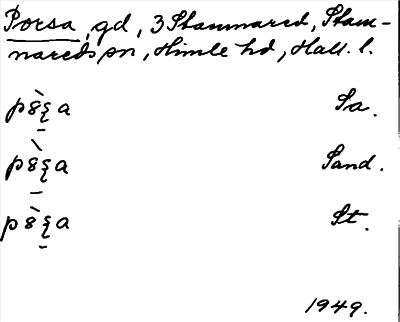 Porsa, gd, 3 Stamnared, Stam-
nareds sn, Himle hd, Hall. l.
p8̀ꞩa Sa.
p8̀ꞩa Sand.
p8̀ꞩa St.
1949.